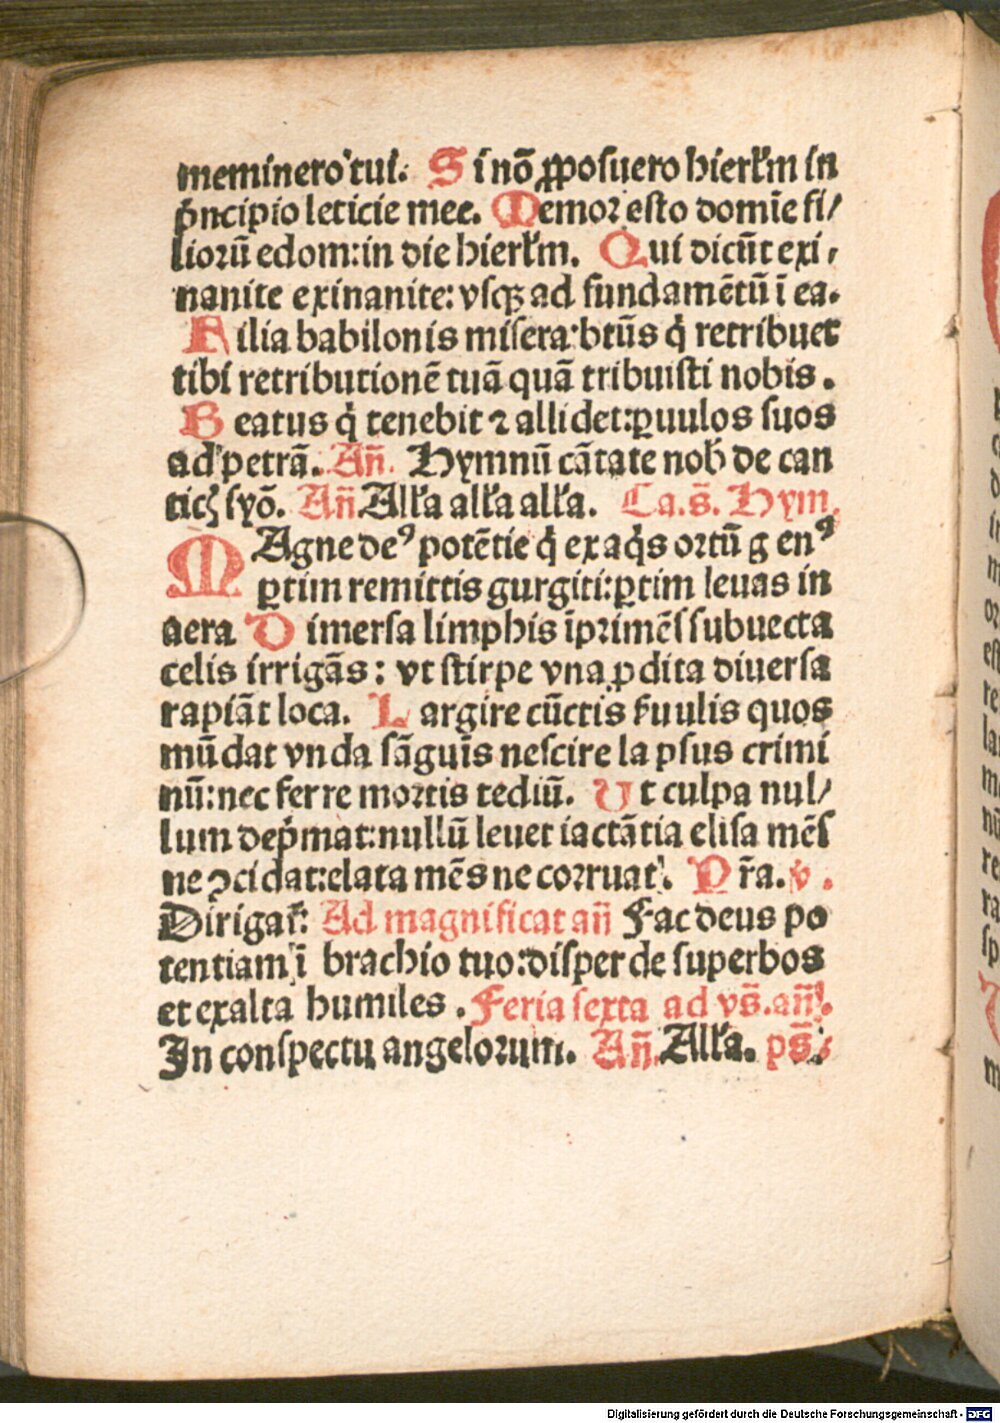 meminero tui. Si nō ꝓposuero hierl̄m in
pͥncipio leticie mee. Memor esto domīe fi/
liorū edom: in die hierl̄m. Qui dicūt exi/
nanite exinanite: vsqꝫ ad fundamētū ī ea.
Filia babilonis misera: btūs qͥ retribuet
tibi retributionē tuā quā tribuisti nobis.
Beatus qͥ tenebit ⁊ allidet: ꝑuulos suos
ad petrā. Añ. Hymnū cātate nob̄ de can
ticꝭ syō. Añ Allʼa allʼa allʼa. Ca. s̄. Hym.
MAgne deꝰ potētie qͥ ex aqͥs ortū genꝰ
ꝑtim remittis gurgiti: ꝑtim leuas in
aera Dimersa limphis īprimēs subuecta
celis irrigās: vt stirpe vna ꝓdita diuersa
rapiāt loca. Largire cūctis ẜuulis quos
mūdat vnda sāguīs nescire lapsus crimi
nū: nec ferre mortis tediū. Ut culpa nul/
lum depͥmat: nullū leuet iactātia elisa mēs
ne ꝯcidat: elata mēs ne corruat. Pr̄a. v.
Dirigat̄: Ad magnificat añ Fac deus po
tentiam ī brachio tuo: disperde superbos
et exalta humiles. Feria sexta ad vs̄. añ.
In conspectu angelorum. Añ. Allʼa. ps̄:
Digitalisierung gefördert durch die Deutsche Forschungsgemeinschaft - DFG